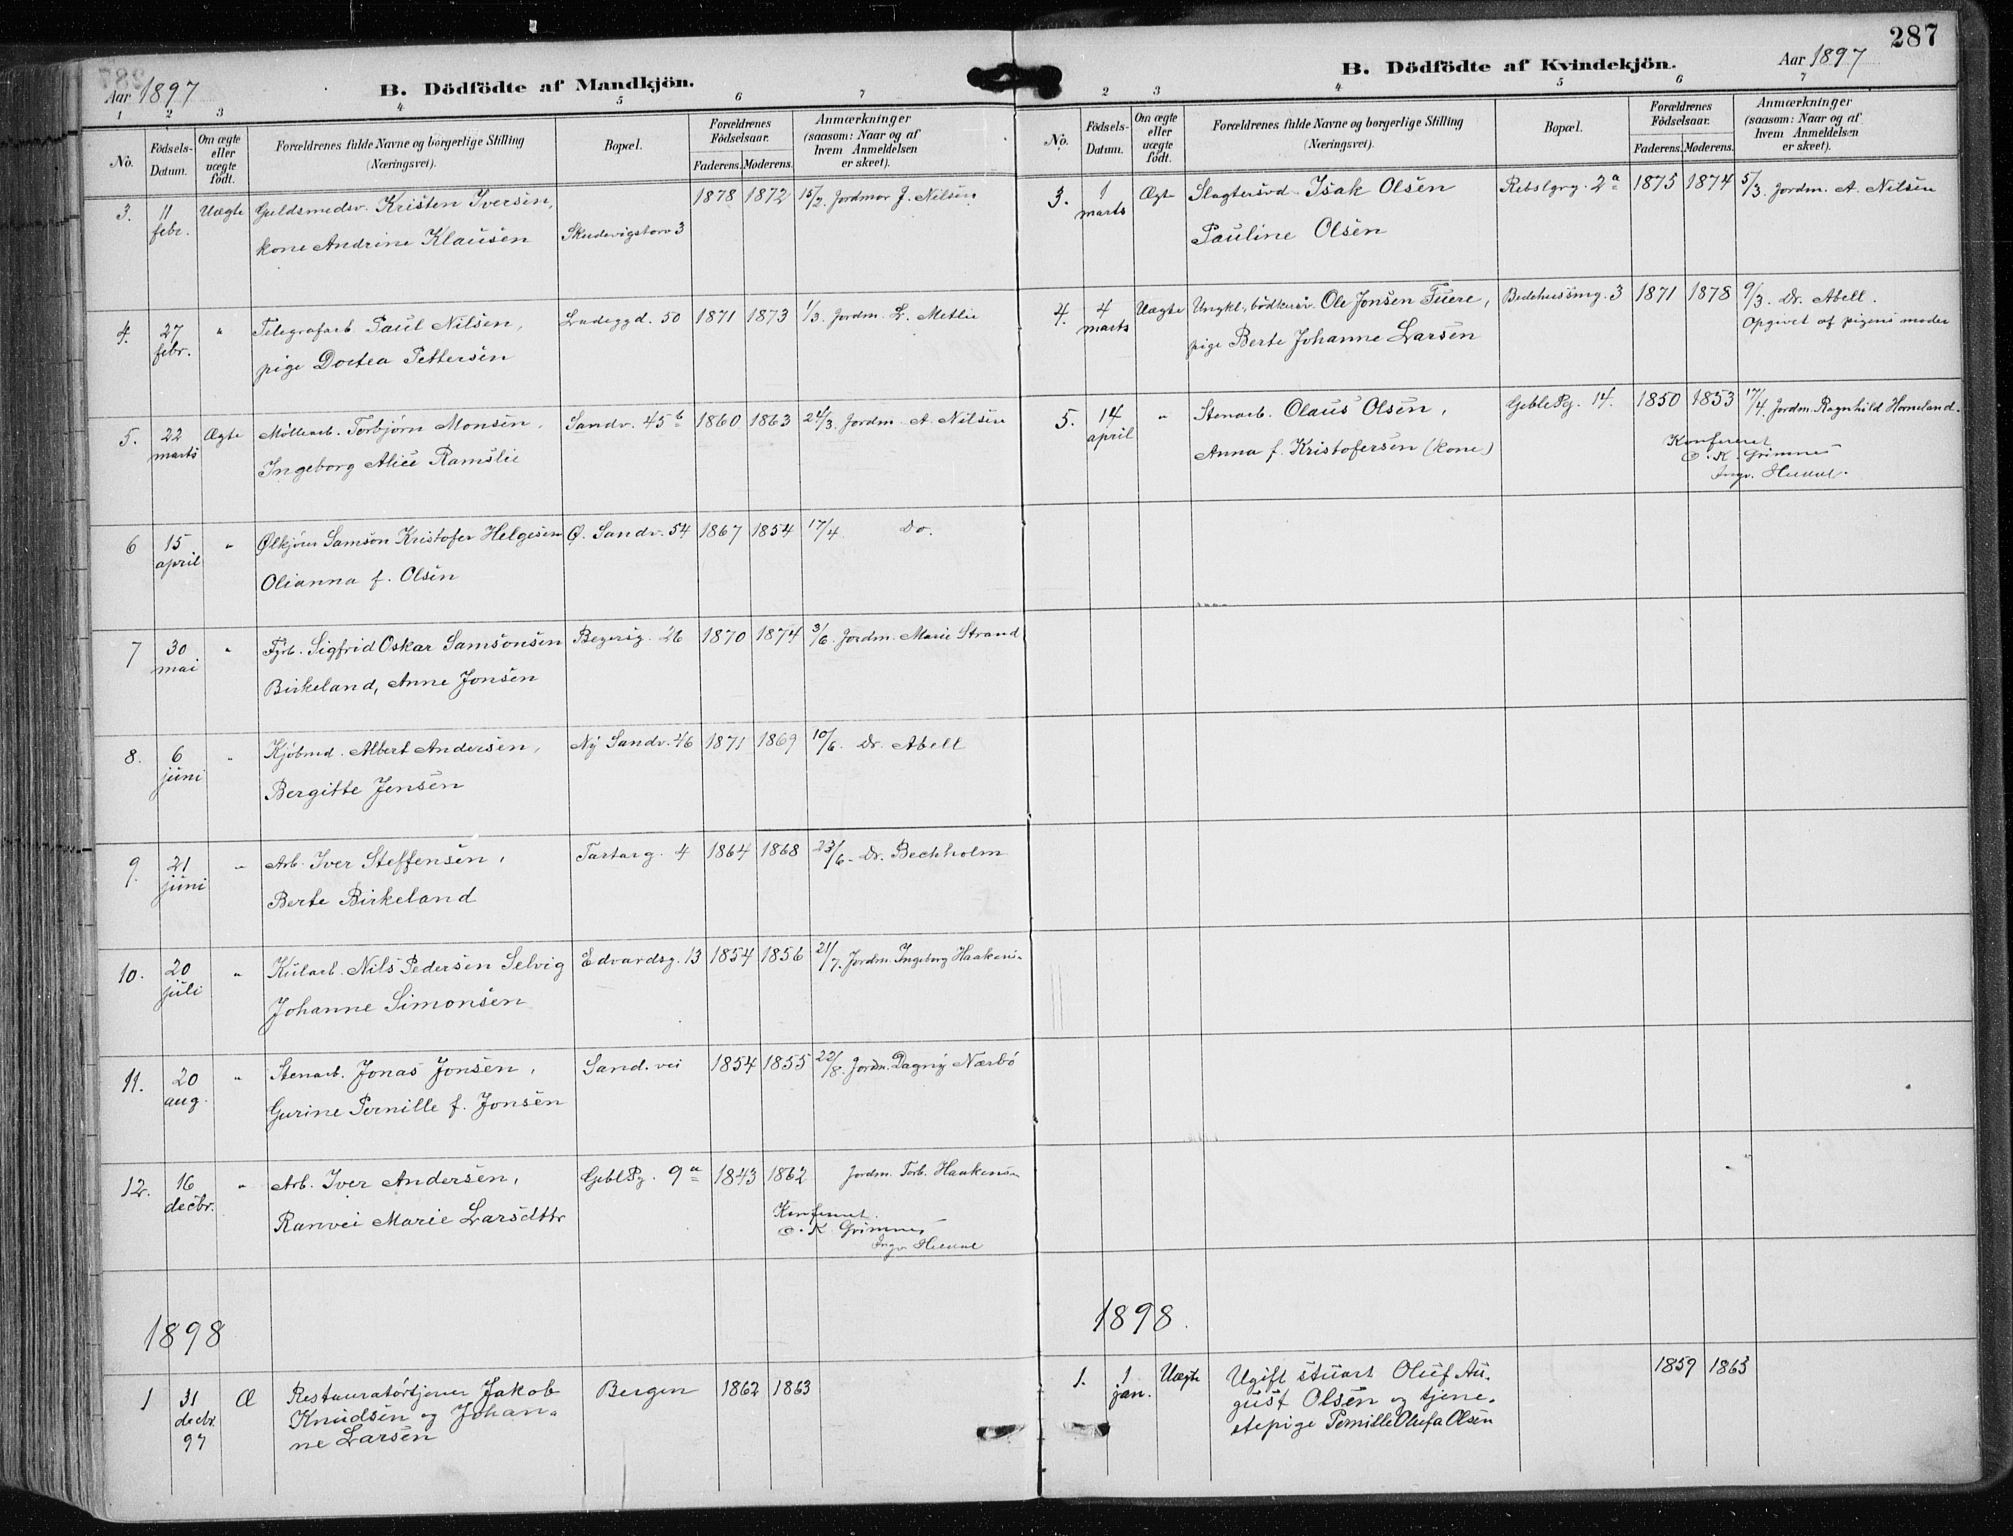 Aar 1897
B. Dödfödte af Mandkjön.
1 2 3 4 5 6 7
No.
Födsels-
Datum.
Om ægte
eller
uægte
födt.
Forældrenes fulde Navne og borgerlige Stilling
(Næringsvei).
Bopæl.
Forældrenes
Födselsaar.
Faderens. Moderens.
Anmærkninger
(saasom: Naar og af
hvem Anmeldelsen
er skeet).
3. 11 Uægte Guldsmedsv. Kristen Iversen, 1878 1872 15/2. Jordmor J. Nilsen
febr. kone Andrine Klausen Skudevigstorv 3
4. 27 " Telegrafarb. Paul Nilsen, Ladeggd. 50 1871 1873 1/3. Jordm. L. Metlie
febr. pige Dortea Pettersen
5. 22 Ægte Møllearb. Torbjørn Monsen, Sandv. 45 b 1860 1863 24/3. Jordm. A. Nilsen
marts Ingeborg Alice Ramslie
6 15 " Ølkjører Samson Kristofer Helgesen Ø. Sandv. 54 1867 1854 17/4 Do.
april Olianna f. Olsen
7 30 " Fyrb. Sigfrid Oskar Samsonsen Beyersg. 26 1870 1874 3/6. Jordm. Marie Strand
mai Birkeland, Anne Jonsen
8. 6 " Kjöbmd. Albert Andersen, Ny Sandv. 46 1871 1869 10/6. Dr. Abell
juni Bergitte Jensen
9. 21 " Arb. Iver Steffensen, Tartarg. 4 1864 1868 23/6. Dr. Bechholm
juni Berte Birkeland
10. 20 " Kularb. Nils Pedersen Selvig Edvardsg. 13 1854 1856 21/7. Jordm. Ingeborg Haakens.
juli Johanne Simonsen
11. 20 " Stenarb. Jonas Jonsen, Sand. vei 1854 1855 22/8. Jordm. Dagny Nærbö
aug. Gurine Pernille f. Jonsen
12. 16 " Arb. Iver Andersen, Geble Pg. 9 a 1843 1862 Jordm. Torb. Haakens
decbr. Ranvei Marie Larsdttr
Konfereret.
O. K. Grimnes
Ingv.
1898
1 31 Æ Restauratörtjener Jakob Bergen 1862 1863
decbr. Knudsen og Johan-
97 ne Larsen
287
B. Dödfödte af Kvindekjön.
Aar 1897
2 3 4 5 6 7
No.
Födsels-
Datum.
Om ægte
eller
uægte
födt.
Forældrenes fulde Navne og borgerlige Stilling
(Næringsvei).
Bopæl.
Forældrenes
Födselsaar.
Faderens. Moderens.
Anmærkninger
(saasom: Naar og af
hvem Anmeldelsen
er skeet).
3. 1 Ægte Slagtersvd. Isak Olsen Rebslgrg. 2 a 1875 1874 5/3. Jordm. A. Nilsen
marts Pauline Olsen
4. 4 Uægte Ungkl., bödkersv. Ole Jonsen Tuere, Bedehussmg. 3 1871 1878 9/3. Dr. Abell.
marts pige Berte Johanne Larsen Opgivet af pigens moder
5. 14 " Stenarb. Olaus Olsen, Geble Pg. 14. 1850 1853 17/4. Jordm. Ragnhild Horneland.
april Anna f. Kristofersen (kone)
Konfereret
O. K. Grimnes
Ingv.
1898.
1. 1 Uægte Ugift stuart Oluf Au- 1859 1863
jan. gust Olsen og tjene-
stepige Pernille Olufa Olsen